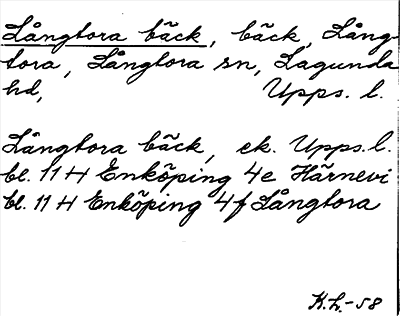 Långtora bäck, bäck, Lång-
tora, Långtora sn, Lagunda
hd, Upps. l.
Långtora bäck, ek. Upps. l.
bl. 11 H Enköping 4e Härnevi
bl. 11 H Enköping 4f Långtora
K.L.-58